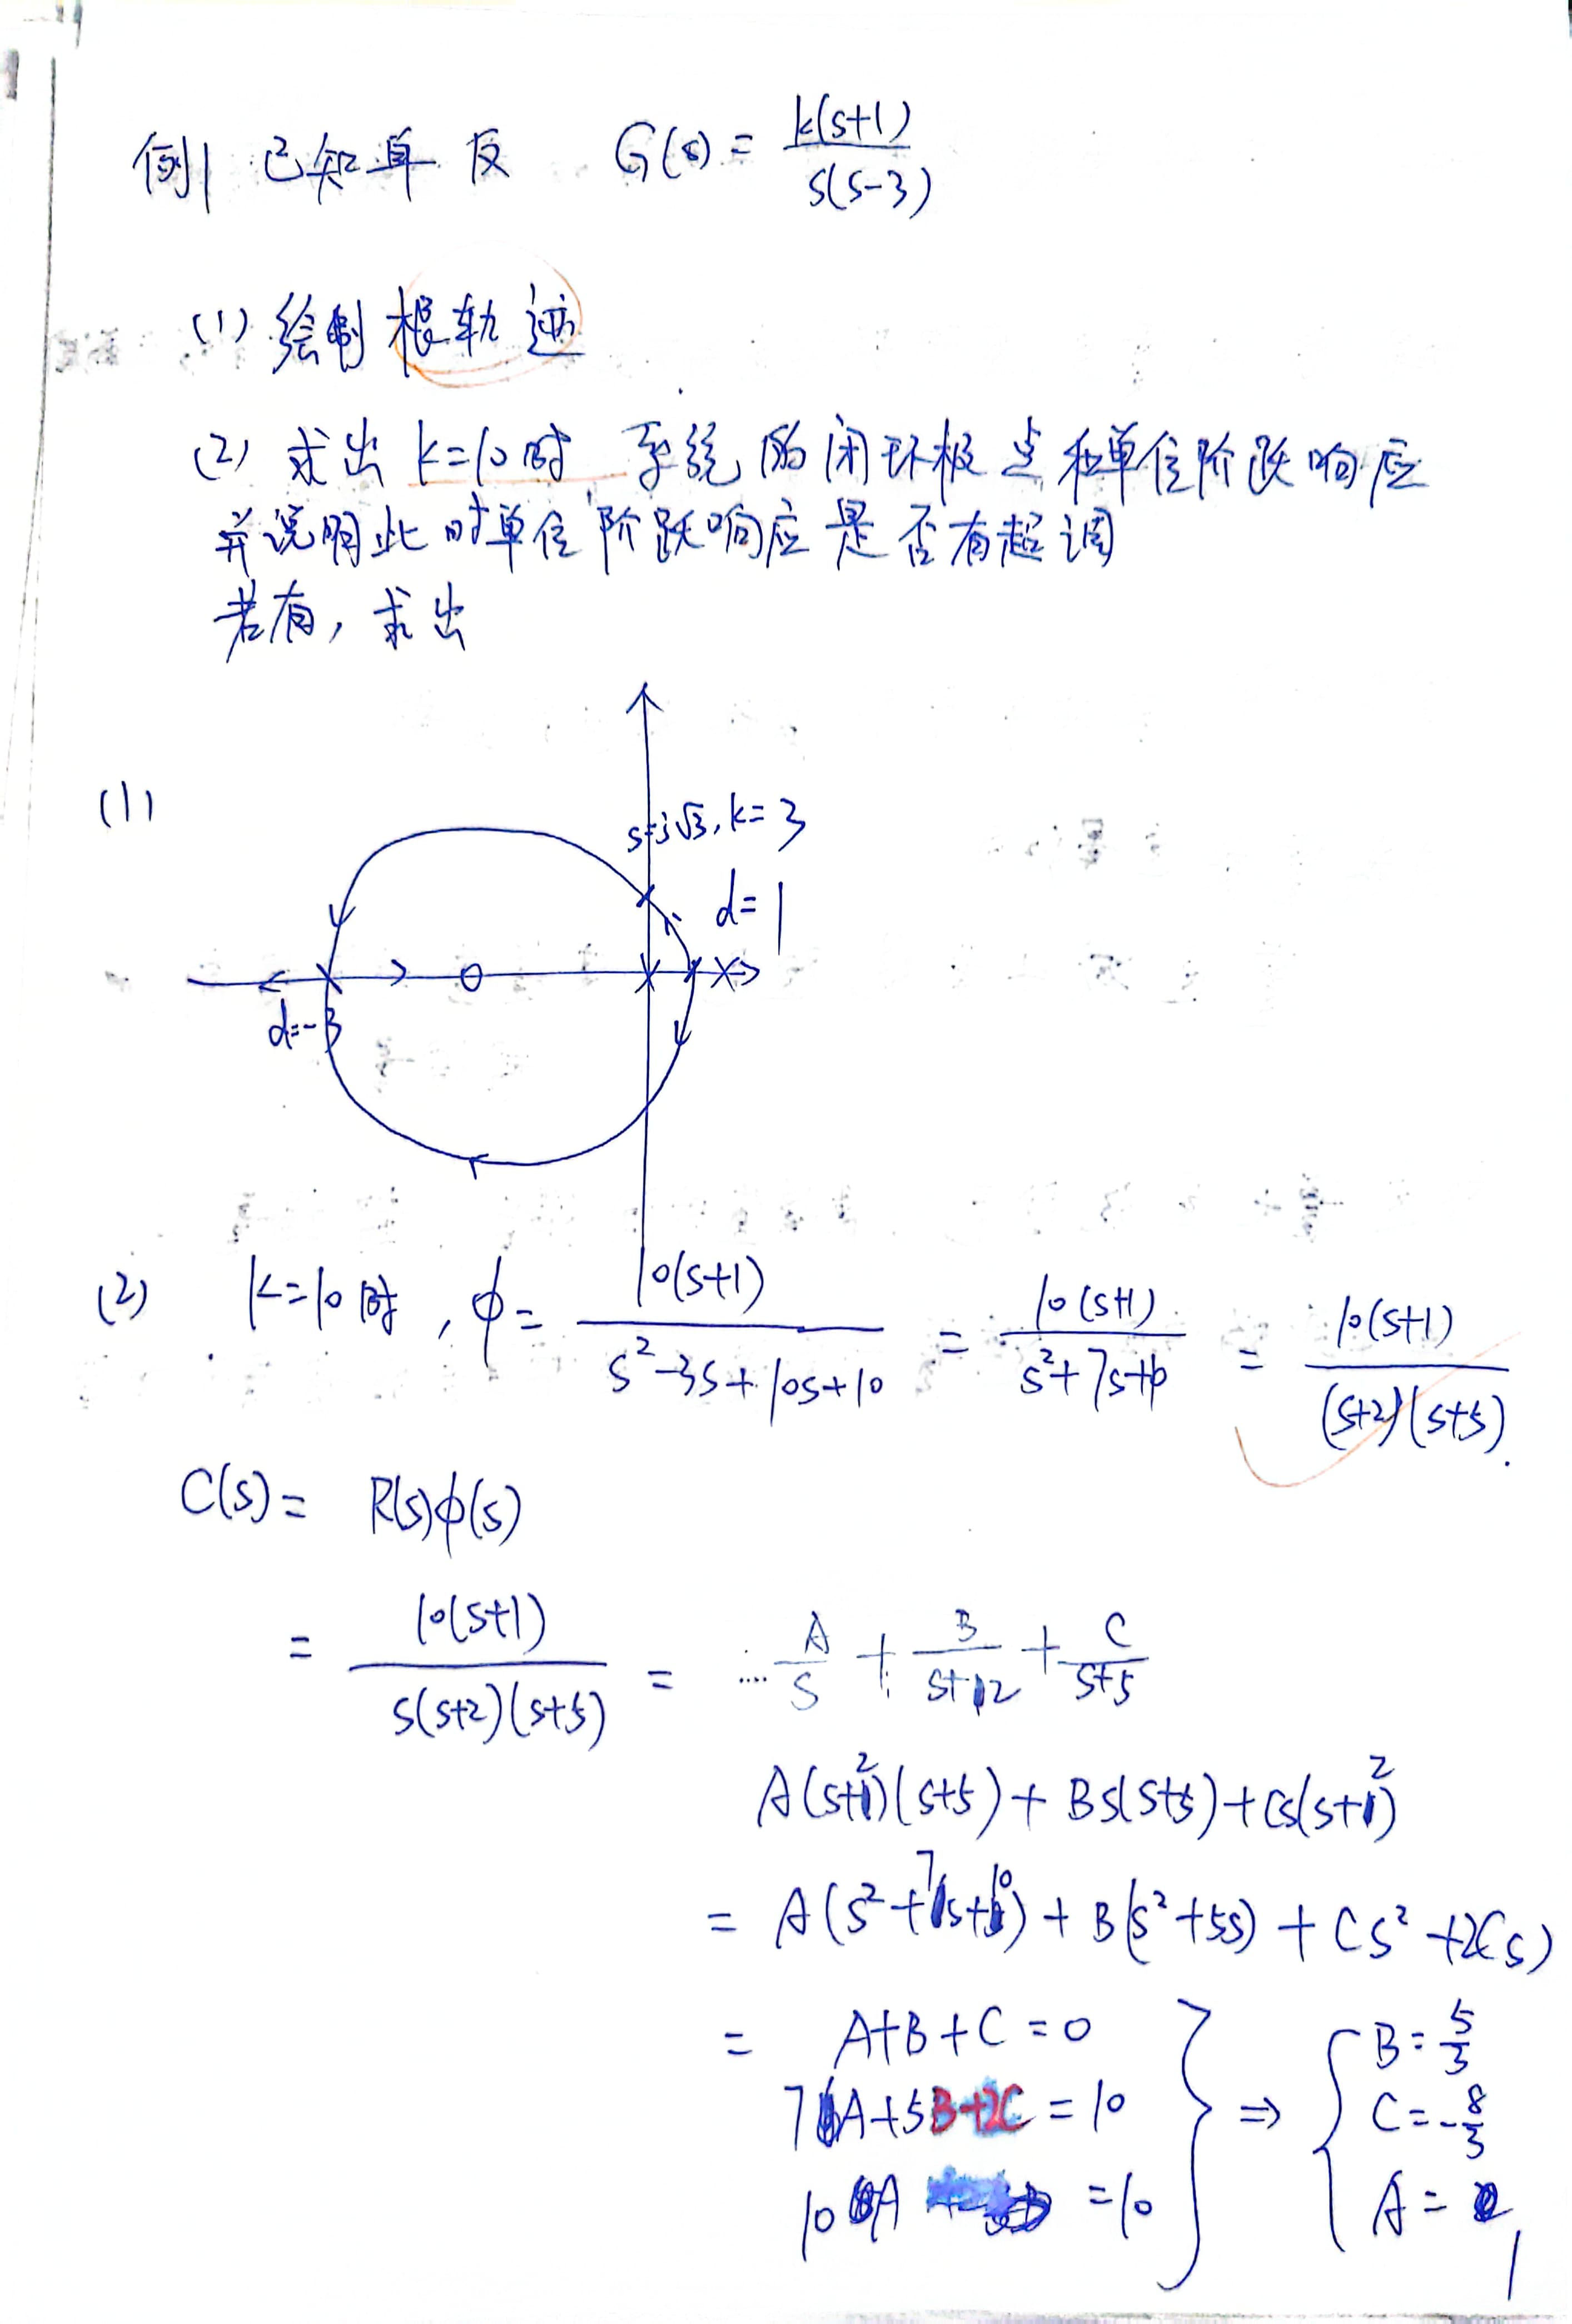 例1 已知单反 G(s) = k(s+1) / s(s-3)
(1) 绘制根轨迹
(2) 求出 k=10时 系统的闭环极点和单位阶跃响应
并说明此时单位阶跃响应是否有超调
若有, 求出
(1)
s=j√3, k=3
d=1
d=-3
(2) k=10时, ϕ= 10(s+1) / s²-3s+10s+10 = 10(s+1) / s²+7s+10 = 10(s+1) / (s+2)(s+5).
C(s)= R(s)ϕ(s)
= 10(s+1) / s(s+2)(s+5) = ... A/s + B/s+2 + C/s+5
A(s+2)(s+5) + Bs(s+5) + Cs(s+2)
= A(s²+7s+10) + B(s²+5s) + Cs²+2Cs)
= A+B+C=0
7A+5B+2C=10
10A =10
⇒
B= 5/3
C= -8/3
A= 1